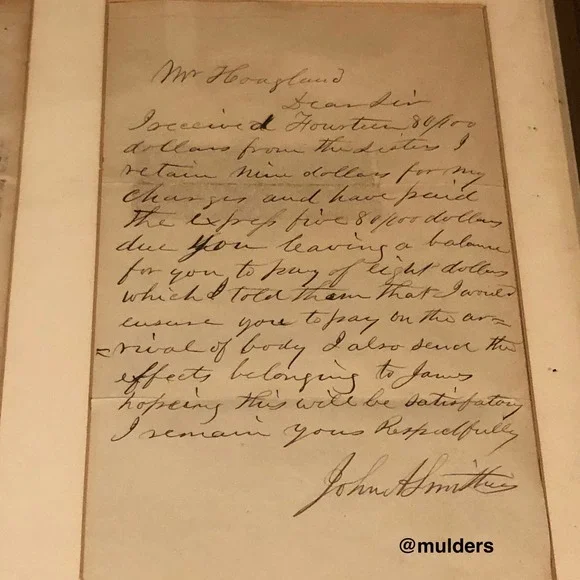 Mr Hoagland
Dear Sir
I received Fourteen 80/100
dollars from the Sisters I
retain nine dollars for my
charges and have paid
the express five 80/100 dollars
due you leaving a balance
for you to pay of eight dollars
which I told them that I would
ensure you to pay on the ar=
=rival of body I also send the
effects belonging to James
hopeing this will be satisfatory
I remain yours Respectfully
John A Smithers
@mulders